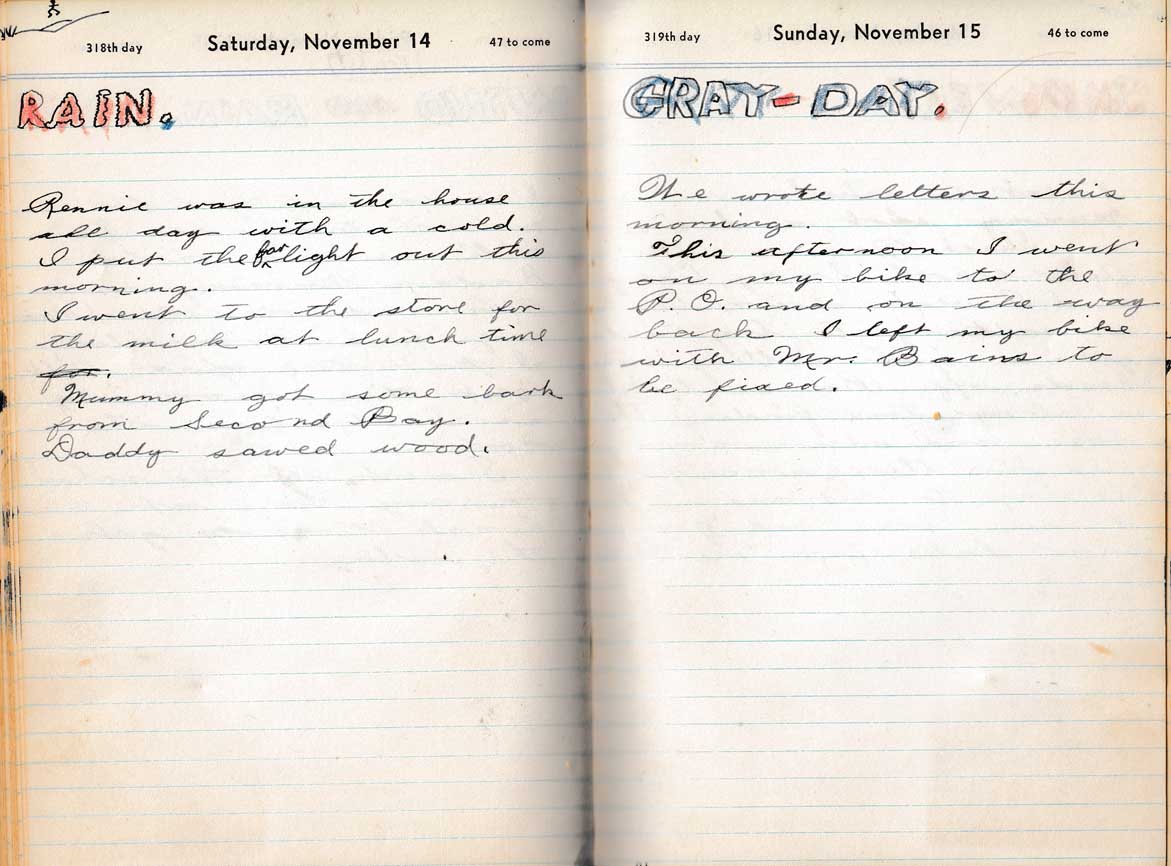 318th day Saturday, November 14 47 to come
RAIN.
Rennie was in the house
all day with a cold.
I put the far light out this
morning.
I went to the store for
the milk at lunch time
for.
Mummy got some bark
from Second Bay.
Daddy sawed wood.
319th day Sunday, November 15 46 to come
GRAY-DAY.
We wrote letters this
morning.
This afternoon I went
on my bike to the
P.O. and on the way
back I left my bike
with Mr. Bains to
be fixed.